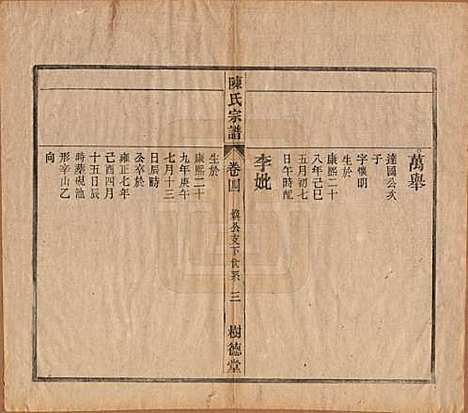 萬舉
達國公次
子
字懷明
生於
康熙二十
八年己巳
五月初七
日午時配
李妣
陳氏宗譜
卷四
公支下世系
三
樹德堂
生於
康熙二十
九年庚午
七月十三
日辰時
公卒於
雍正七年
己酉四月
十五日辰
時葬硯池
形辛山乙
向